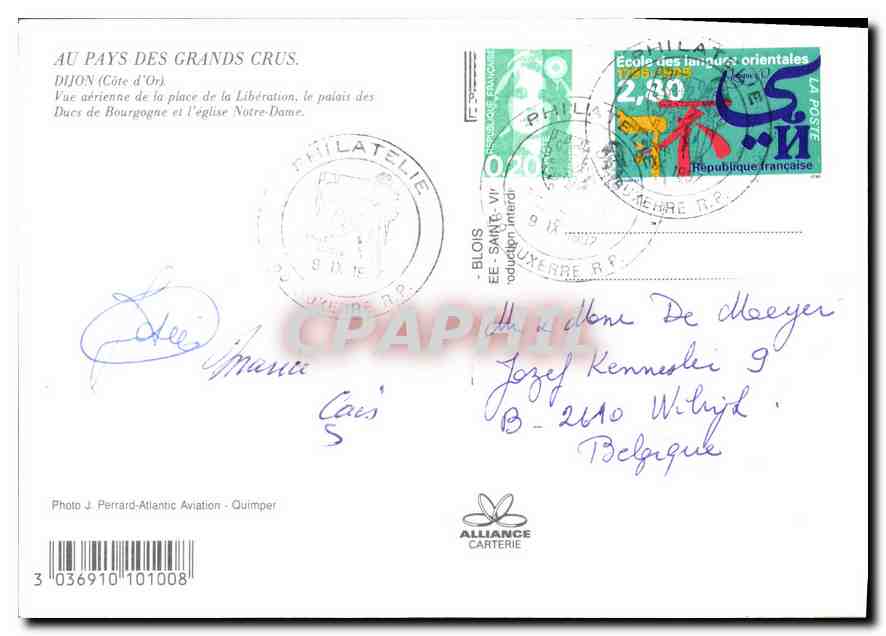 AU PAYS DES GRANDS CRUS.
DIJON (Côte d'Or).
Vue aérienne de la place de la Libération, le palais des
Ducs de Bourgogne et l'église Notre-Dame.
RÉPUBLIQUE FRANÇAISE
0,20
École des langues orientales
1795-1995
2,80
LA POSTE
République française
PHILATELIE
9 IX 19
AUXERRE R.P.
PHILATELIE
9 IX
AUXERRE R.P.
PHILATELIE
AUXERRE R.P.
- BLOIS
EE - SAINT-
roduction interdi
CPAPHIL
M. & Mme De Maeyer
Jozef Kenneslei 9
B-2610 Wilrijk.
Belgique
Photo J. Perrard-Atlantic Aviation - Quimper
ALLIANCE
CARTERIE
3 036910 101008